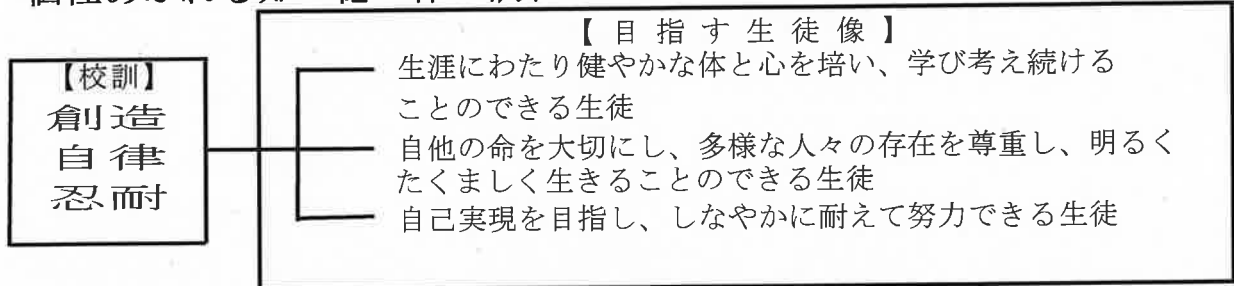 【目指す生徒像】
【校訓】
創造
自律
忍耐
生涯にわたり健やかな体と心を培い、学び考え続ける
ことのできる生徒
自他の命を大切にし、多様な人々の存在を尊重し、明るく
たくましく生きることのできる生徒
自己実現を目指し、しなやかに耐えて努力できる生徒